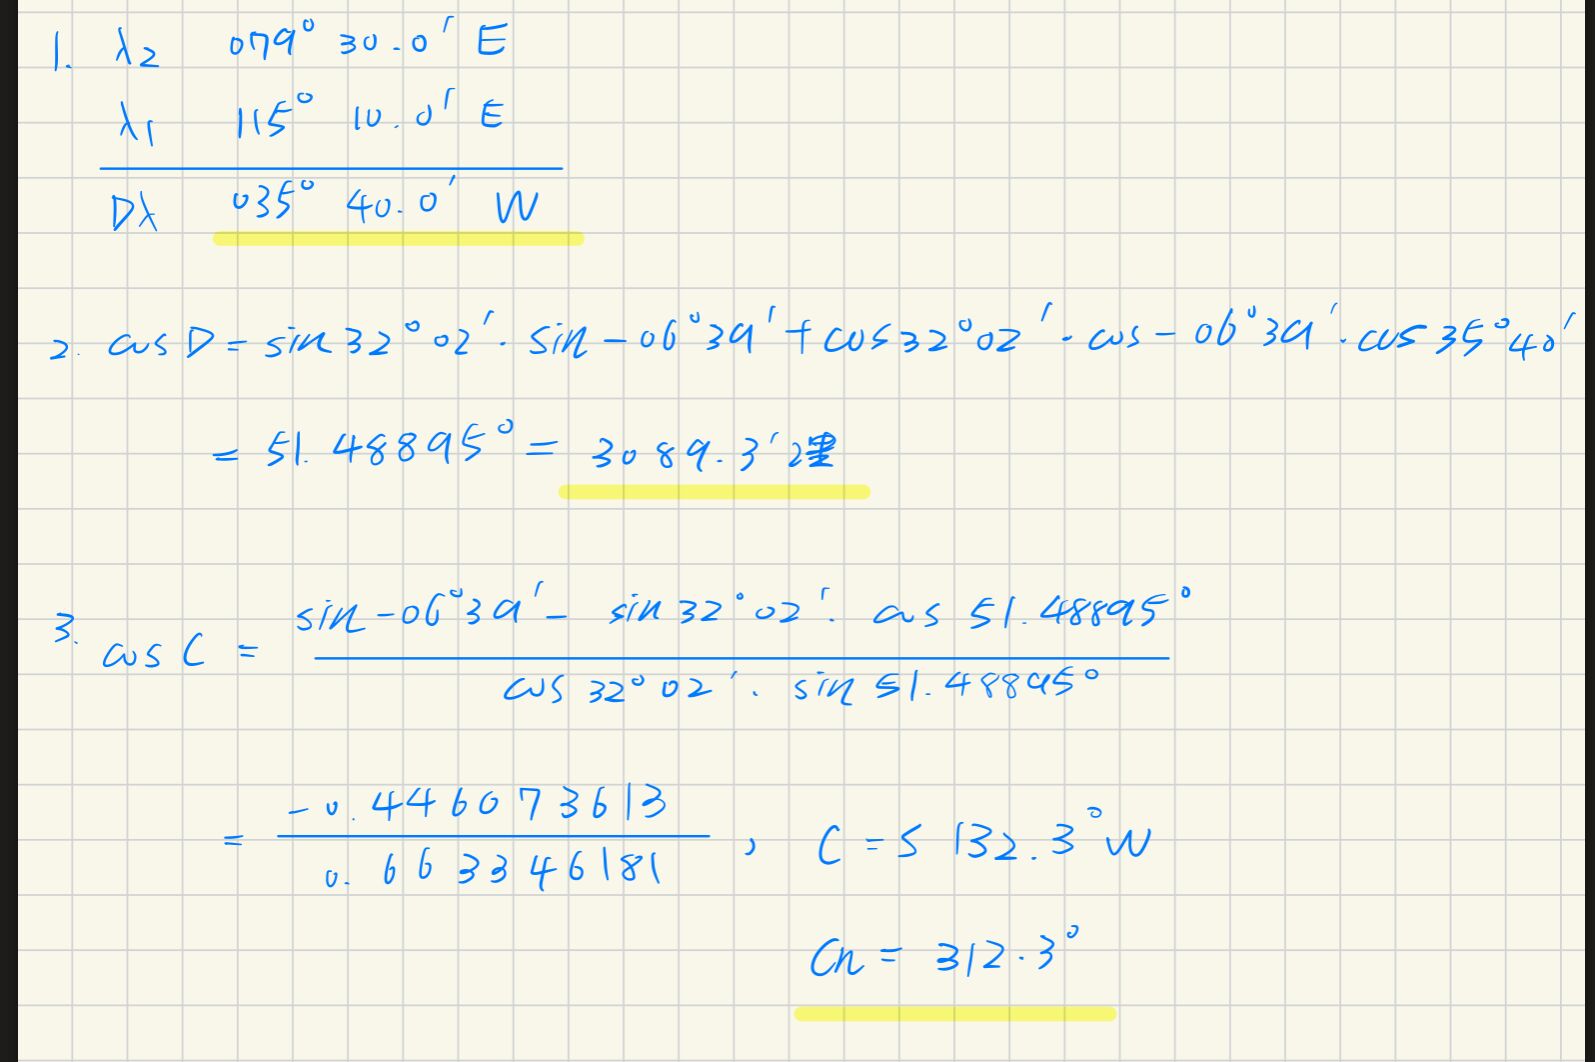 1. λ2 079° 30.0' E
λ1 115° 10.0' E
Dλ 035° 40.0' W
2. cos D = sin 32° 02' · sin - 06° 39' + cos 32° 02' · cos - 06° 39' · cos 35° 40'
= 51.48895° = 3089.3' 浬
3. cos C = sin - 06° 39' - sin 32° 02' · cos 51.48895°
cos 32° 02' · sin 51.48895°
= -0.446073613
0.663346181 , C = S 132.3° W
Cn = 312.3°